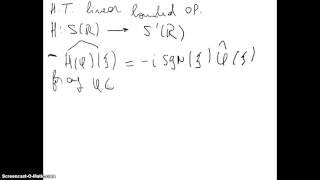 H.T. linear bounded op.
H: S(R) → S'(R)
^H(φ)(ξ) = -i sgn(ξ) φ̂(ξ)
for any φ ∈
Screencast-O-Matic.com